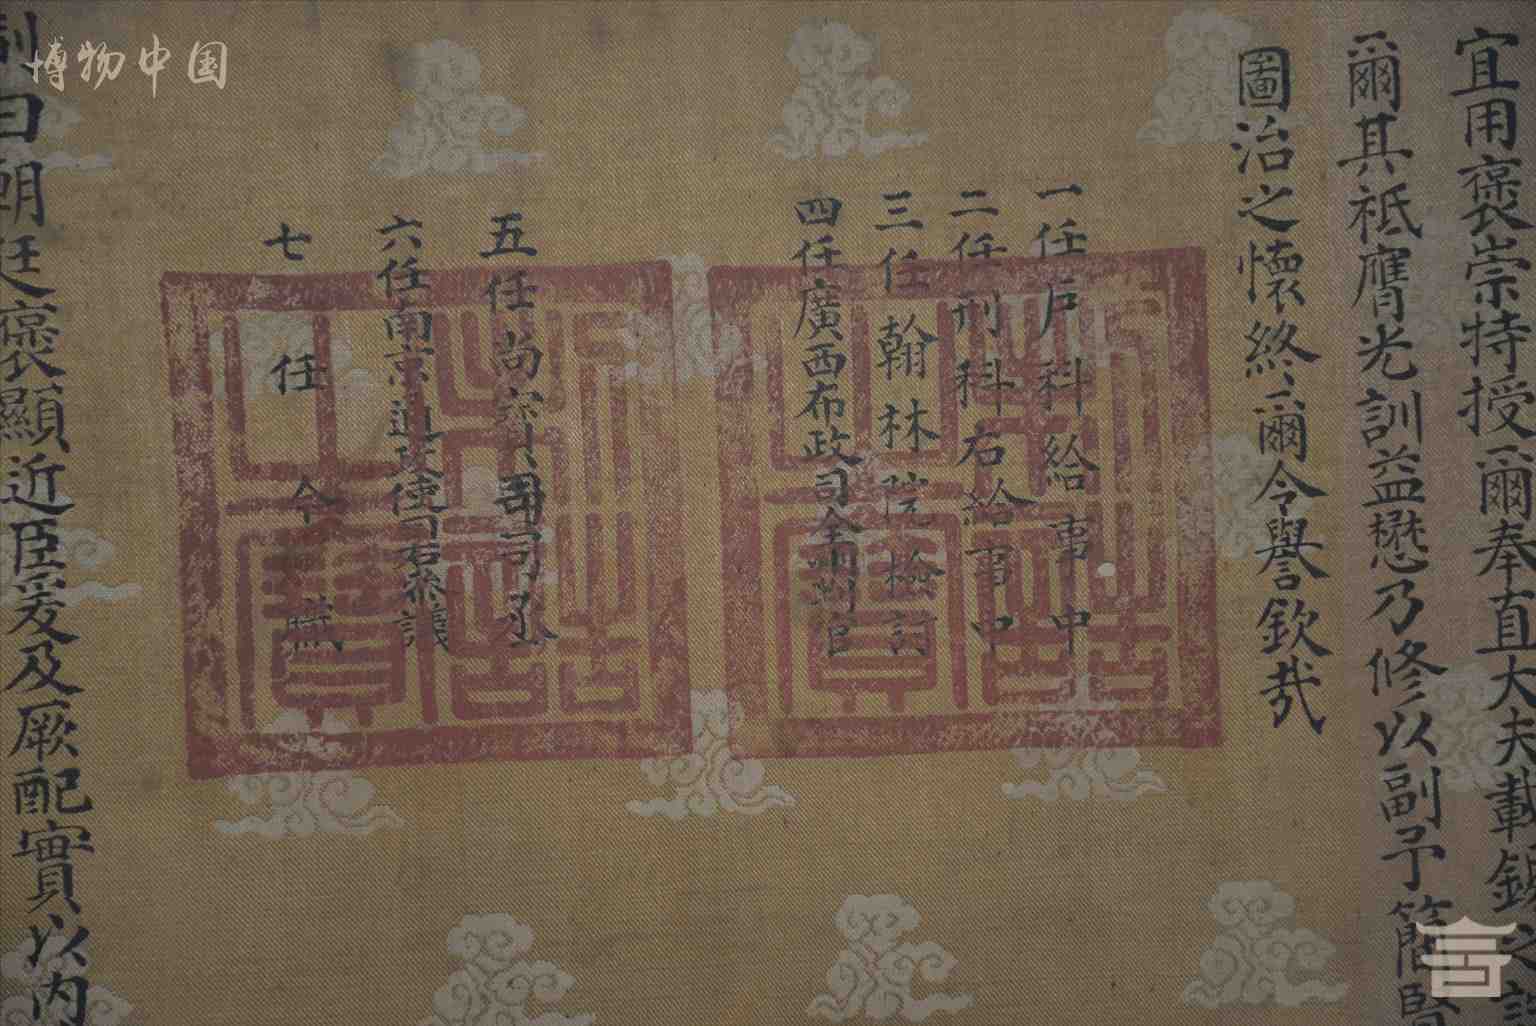 博物中国
宜用褒崇特授爾奉直大夫載錫之
爾其祗膺光訓益懋乃修以副予簡賢
圖治之懷終爾令譽欽哉
一任戶科給事中
二任刑科右給事中
三任翰林院檢討
四任廣西布政司全州判官
五任尚寶司司丞
六任南京通政使司右參議
七任今職
制曰朝廷褒顯近臣爰及厥配實以內